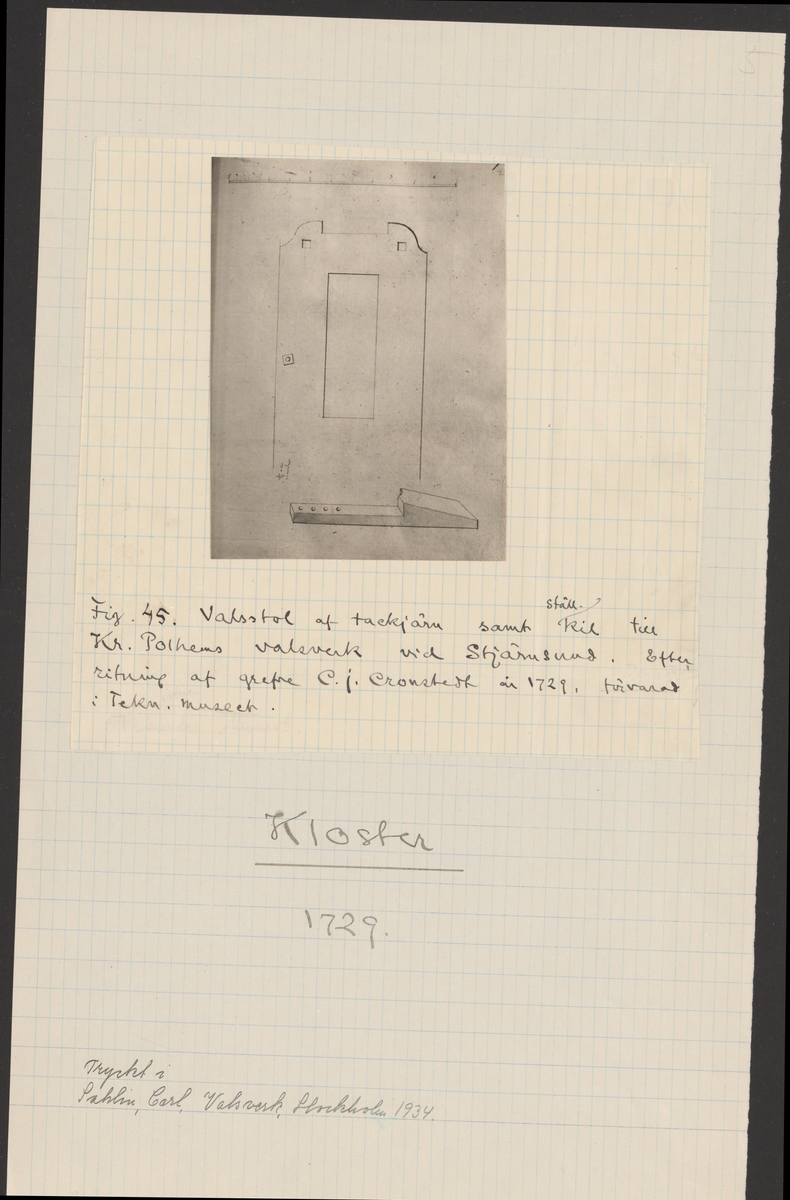 5
Fig. 45. Valsstol af tackjärn samt ställ-kil till
Kr. Polhems valsverk vid Stjärnsund. Efter
ritning af grefve C. J. Cronstedt år 1729, förvarad
i Tekn. museet.
Kloster
1729.
Tryckt i
Sahlin, Carl, Valsverk, Stockholm 1934.